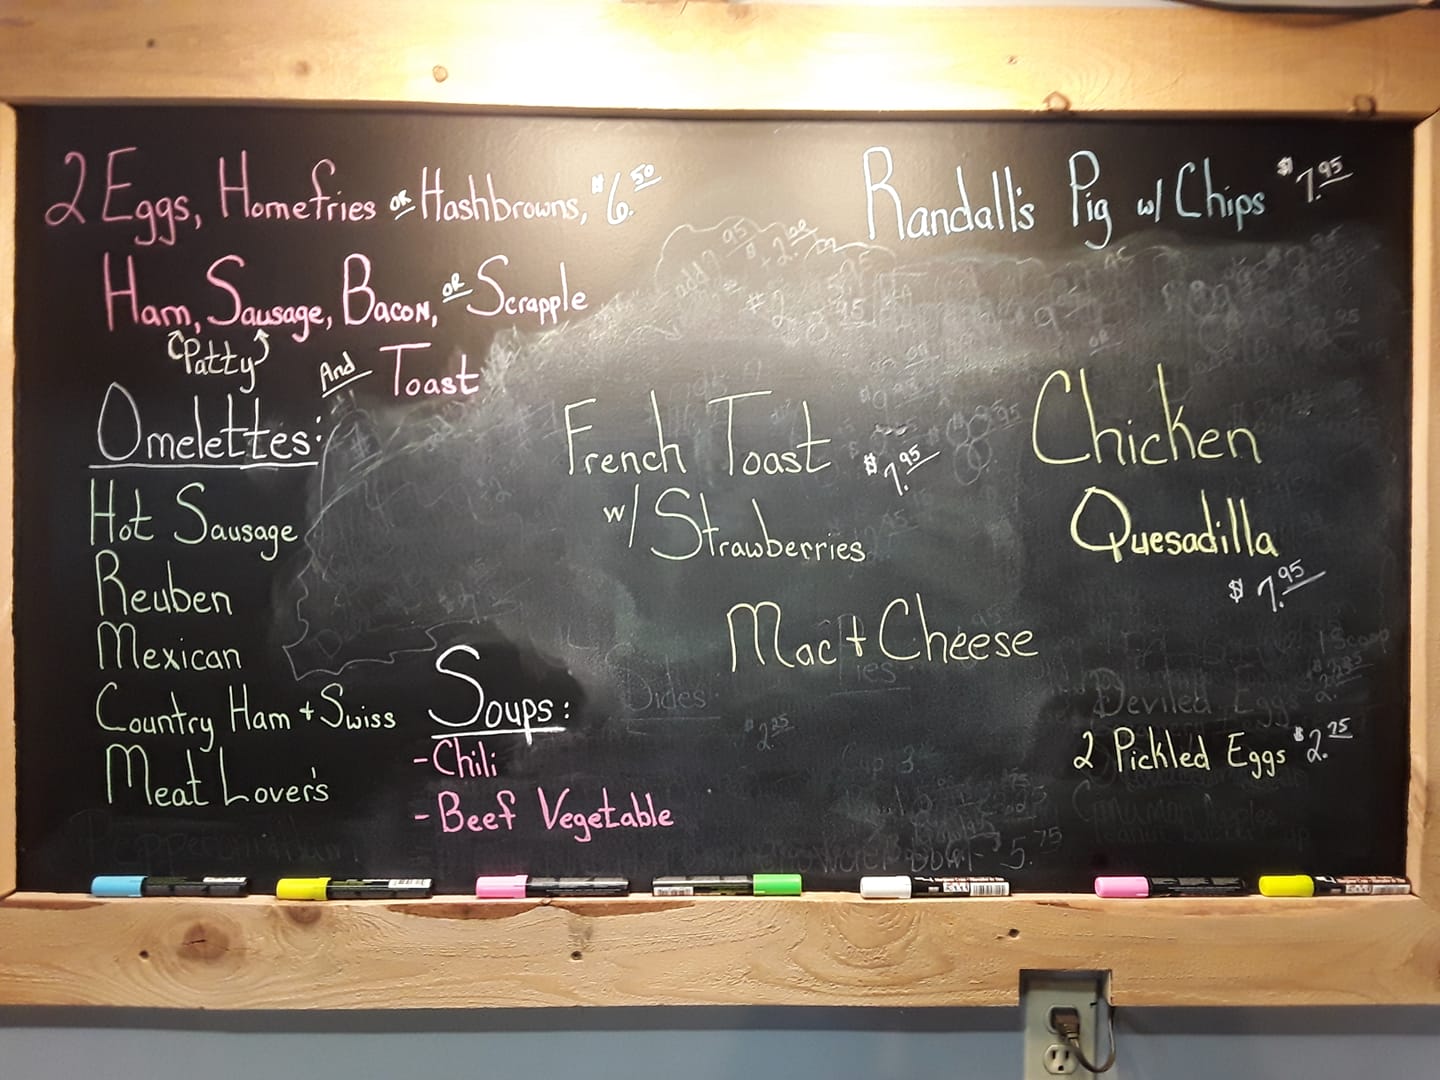 2 Eggs, Homefries or Hashbrowns, $6.50
Ham, Sausage, Bacon, or Scrapple
Patty
And Toast
Omelettes:
Hot Sausage
Reuben
Mexican
Country Ham + Swiss
Meat Lover's
Soups:
- Chili
- Beef Vegetable
French Toast $7.95
w/ Strawberries
Mac + Cheese
Sides:
Randall's Pig w/ Chips $7.95
Chicken
Quesadilla
$7.95
Deviled Eggs
2 Pickled Eggs $2.75